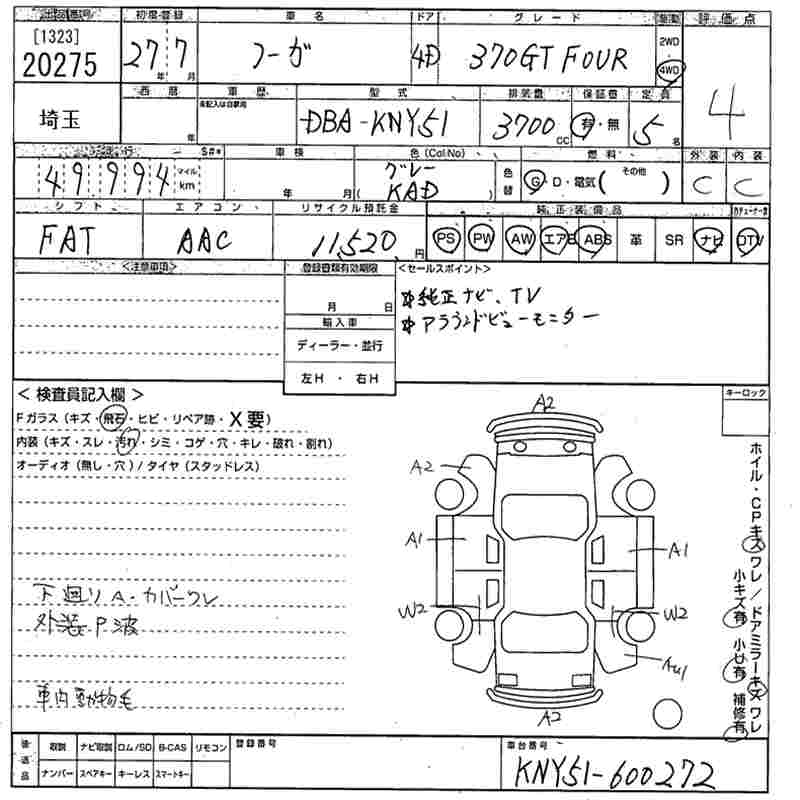 出品番号 初度登録 車名 ドア グレード 駆動 評価点
[1323]
20275 27年 7月 フーガ 4D 370GT FOUR 2WD 4WD 4
埼玉 西暦 年 車歴 未記入は自家用 型式 排気量 保証書 定員
DBA-KNY51 3700cc 有・無 5名
走行 S#* 車検 色(Col No) 色替 燃料 外装 内装
49994 マイル km 年 月 グレー (KAD) G・D・電気 (その他) C C
シフト エアコン リサイクル預託金 純正装備品
FAT AAC 11,520円 PS PW AW エアB ABS 革 SR ナビ DTV
<注意事項> 登録書類有効期限 <セールスポイント>
月 日
*純正ナビ、TV
*アラウンドビューモニター
輸入車
ディーラー・並行
左H・右H
<検査員記入欄> キーロック
Fガラス(キズ・飛石・ヒビ・リペア跡・X要)
内装(キズ・スレ・汚れ・シミ・コゲ・穴・キレ・破れ・割れ)
オーディオ(無し・穴)/タイヤ(スタッドレス)
A2
A2
A1 A1
W2 W2
AU1
A2
ホイル・CPキズワレ/ドアミラーキズワレ
小キズ有 小U有 補修有
下廻りA・カバーワレ
外装P波
車内動物毛
後送品 取説 ナビ取説 ロム/SD B-CAS リモコン 登録番号 車台番号
ナンバー スペアキー キーレス スマートキー KNY51-600272